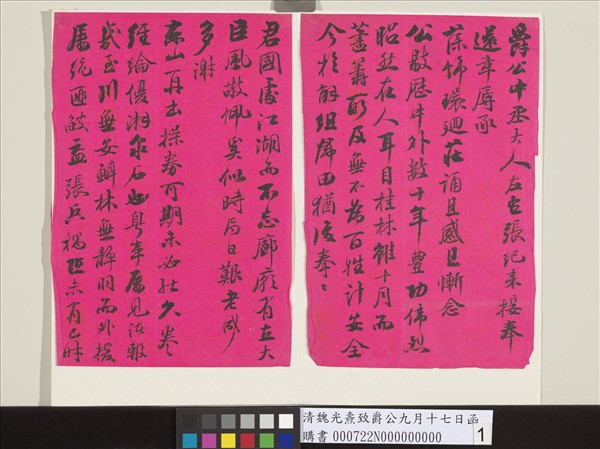 爵公中丞大人左右張紀來接奉
還章辱承
葆飾環迴莊誦且感且慚念
公敭歷中外數十年豐功偉烈
昭然在人耳目桂林雖十月而
蓋籌所及無不為百姓計安全
今於解組歸田猶復拳拳
君國處江湖而不忘廊廟有古大
臣風敬佩奚似時局日艱老成
多謝
東山再出操券可期未必能久卷
經綸優游泉石也粵章屬見法報
我圣川無安鱗林無靜羽而外援
屬絕匪益張兵禍正未有已時
清魏光燾致爵公九月十七日函
購書 000722N000000000
1